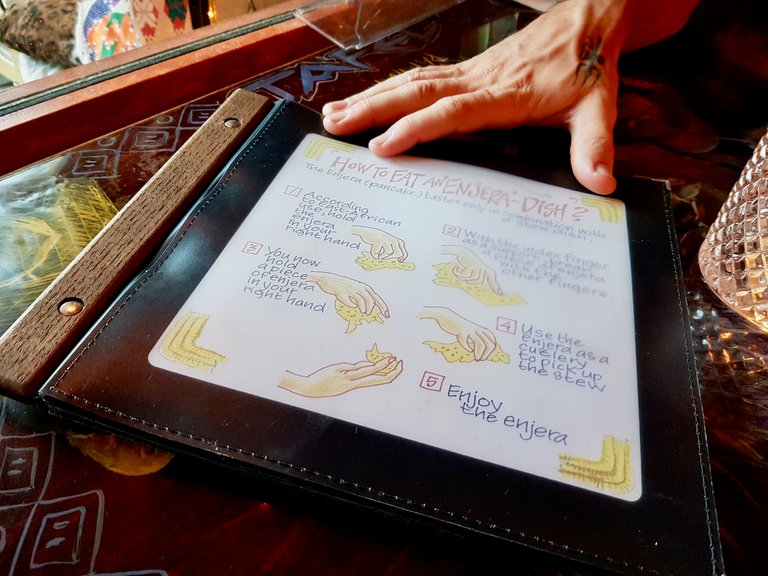 HOW TO EAT AN ENJERA-DISH?
The Enjera (pancake) tastes only in combination with
a stew dish.
1 According
to East African
use, hold
the enjera
in your
right hand
2 With the index finger
as a pivot, break
enjera
other fingers.
3 You now
hold
a piece
of enjera
in your
right hand
4 Use the
enjera as a
cutlery
to pick up
the stew
5 Enjoy
the enjera